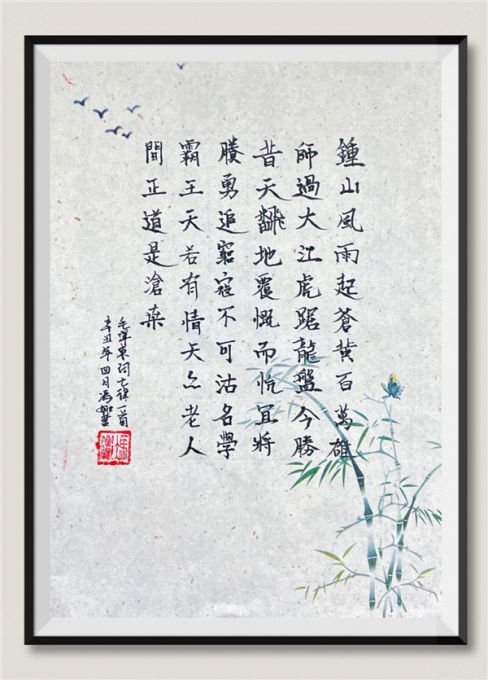 鍾山風雨起蒼黃百萬雄
師過大江虎踞龍盤今勝
昔天飜地覆慨而忼宜將
賸勇追窮寇不可沽名學
霸王天若有情天亦老人
間正道是滄桒
毛澤東詞七律一首
辛丑年四月馮